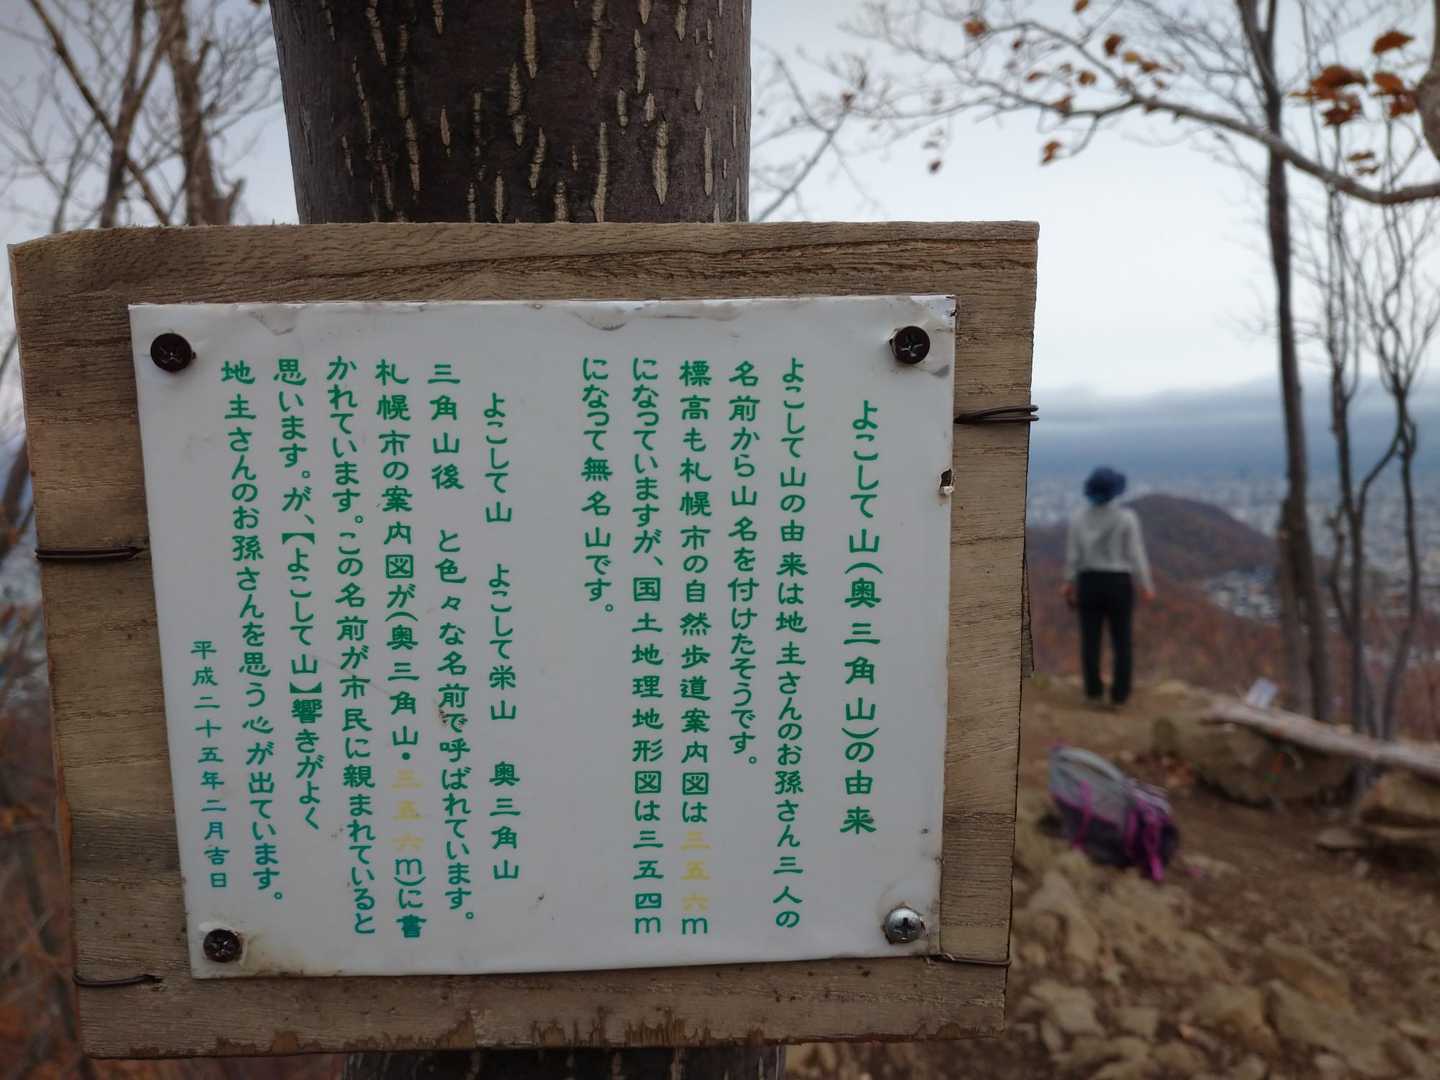 よこして山(奥三角山)の由来
よこして山の由来は地主さんのお孫さん三人の
名前から山名を付けたそうです。
標高も札幌市の自然歩道案内図は三五六m
になっていますが、国土地理地形図は三五四m
になって無名山です。
よこして山　よこして栄山　奥三角山
三角山後　と色々な名前で呼ばれています。
札幌市の案内図が(奥三角山・三五六m)に書
かれています。この名前が市民に親まれていると
思います。が、【よこして山】響きがよく
地主さんのお孫さんを思う心が出ています。
平成二十五年二月吉日